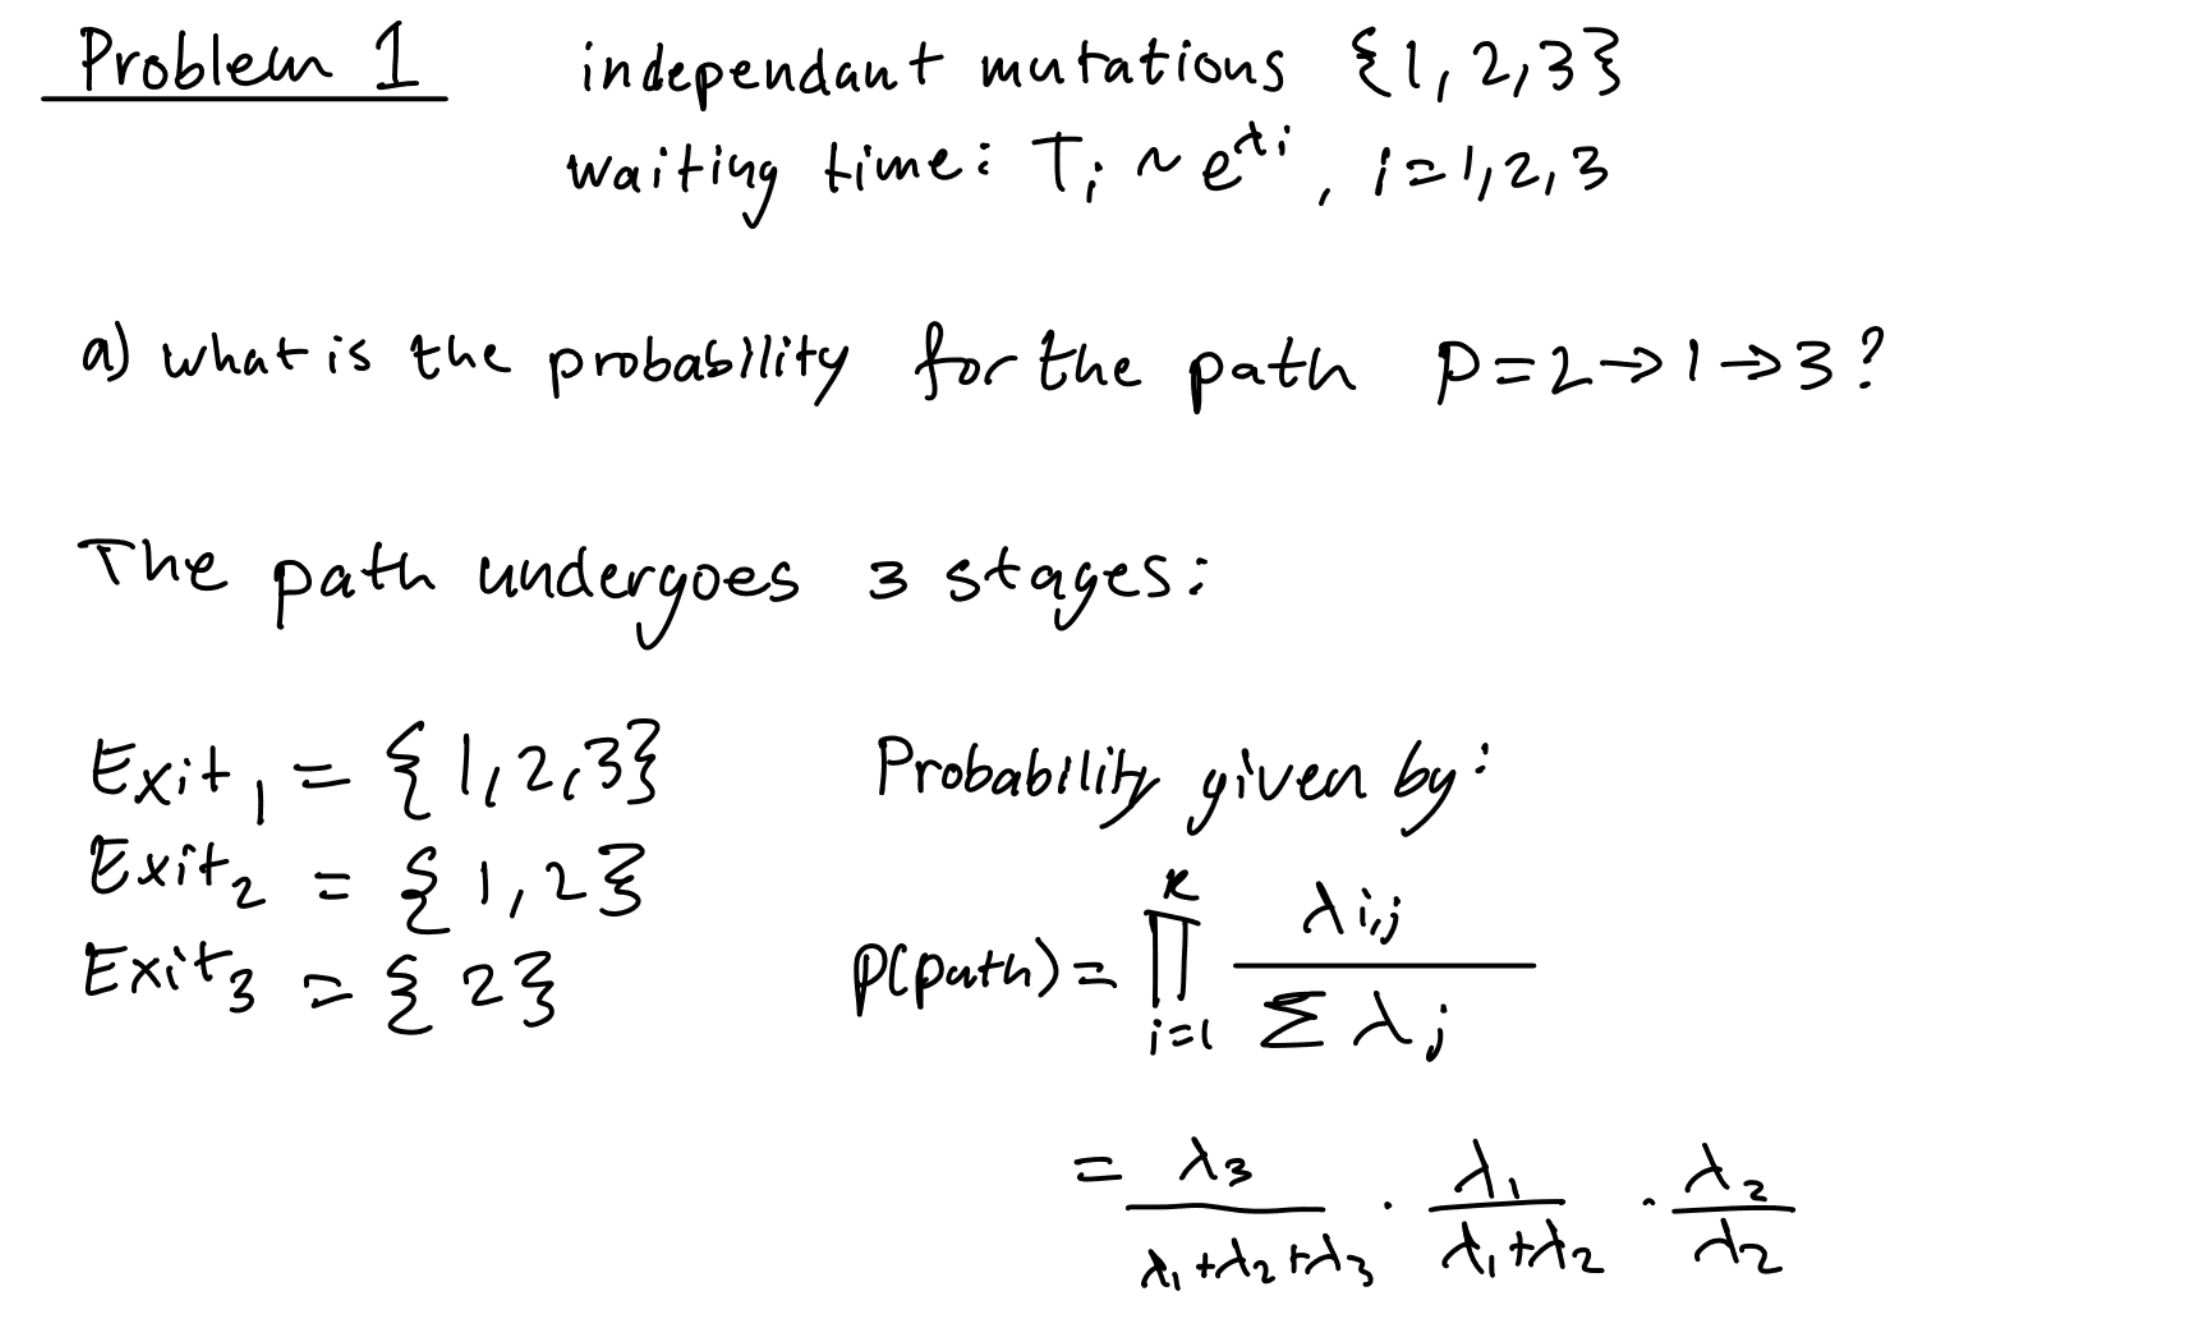 Problem 1 independant mutations {1, 2, 3}
waiting time: Tᵢ ~ e^λᵢ , i=1,2,3
a) what is the probability for the path p=2→1→3?
The path undergoes 3 stages:
Exit₁ = {1,2,3} Probability given by:
Exit₂ = {1,2}
Exit₃ = {2} p(path) = ∏_{i=1}^{k} λi,j / Σ λj
= λ₃/(λ₁+λ₂+λ₃) · λ₁/(λ₁+λ₂) · λ₂/λ₂